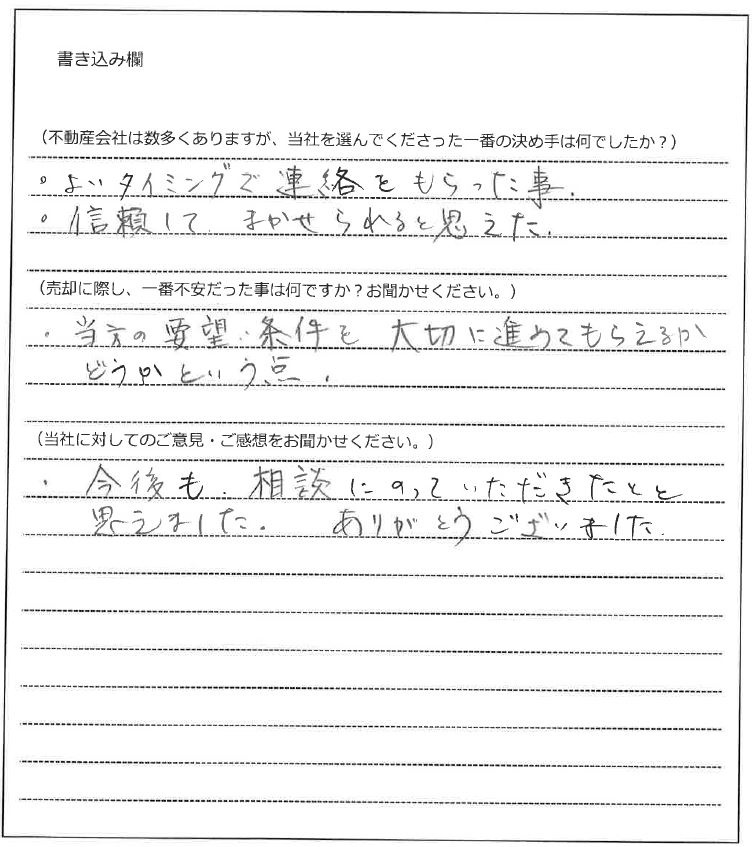 書き込み欄
(不動産会社は数多くありますが、当社を選んでくださった一番の決め手は何でしたか?)
。よいタイミングで連絡をもらった事.
。信頼して まかせられると思えた.
(売却に際し、一番不安だった事は何ですか?お聞かせください。)
・当方の要望・条件を 大切に進めてもらえるか
どうかという点.
(当社に対してのご意見・ご感想をお聞かせください。)
・今後も.相談にのっていただきたいと
思えました. ありがとうございました.